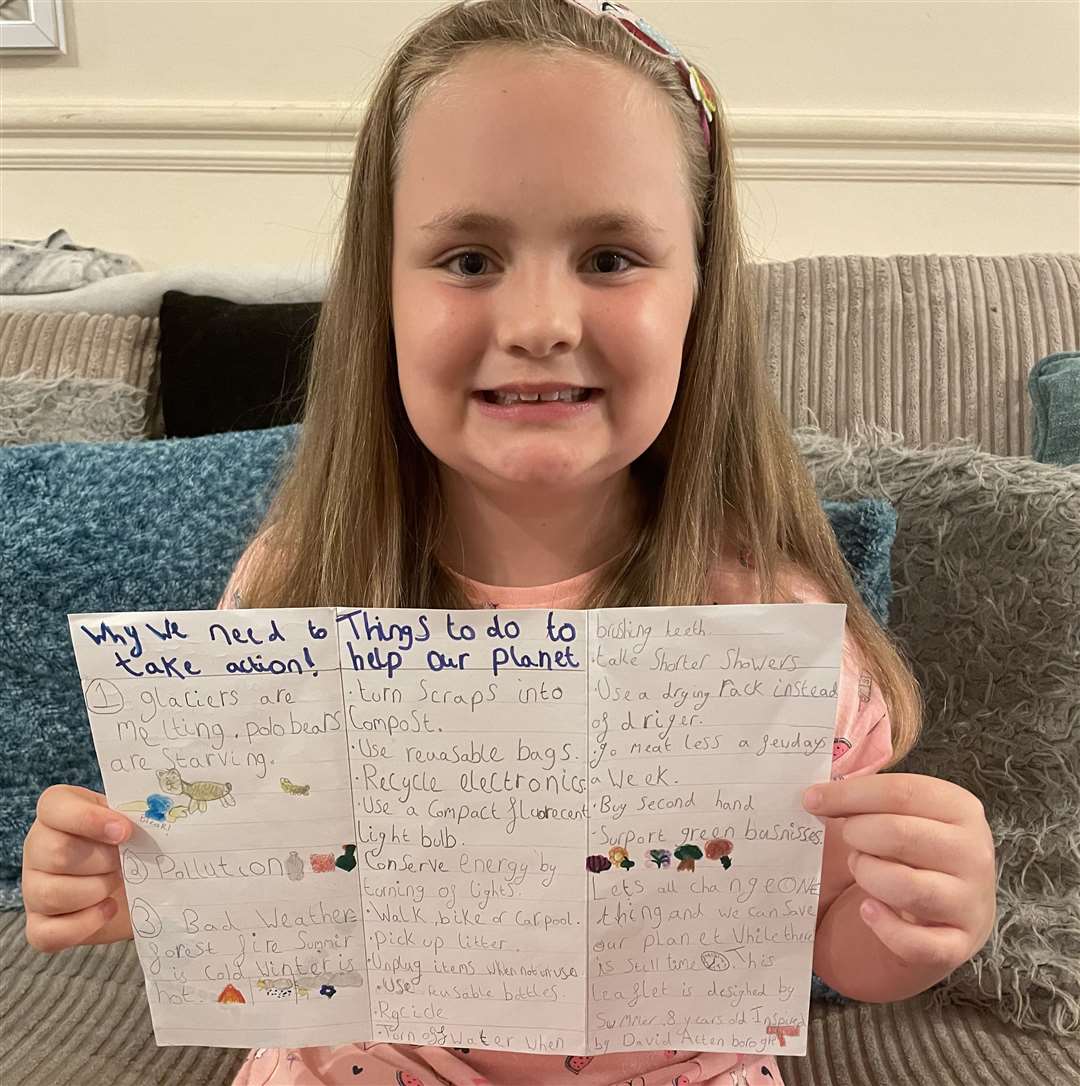 Why We need to
take action!
1 glaciers are
melting, polo bears
are starving.
2 Pollution
3 Bad Weather
forest fire Summir
is cold winter is
hot
Things to do to
help our planet
· turn Scraps into
Compost.
· Use reuasable bags.
· Recycle electronics
· Use a Compact fluorecent
light bulb.
Conserve energy by
turning of lights.
· Walk, bike or carpool.
· pick up litter.
· Unplug items when not in use
· Use reusable bottles.
· Racicle
· Turn off water when
brushing teeth.
· take Shorter Showers
· Use a drying rack instead
of driger.
go meat less a few days
a week.
· Buy second hand
· Surport green busnisses.
Lets all change ONE
thing and we can save
our planet while there
is still time This
leaflet is designed by
Summer, 8 years old Inspired
by David Atten borogh